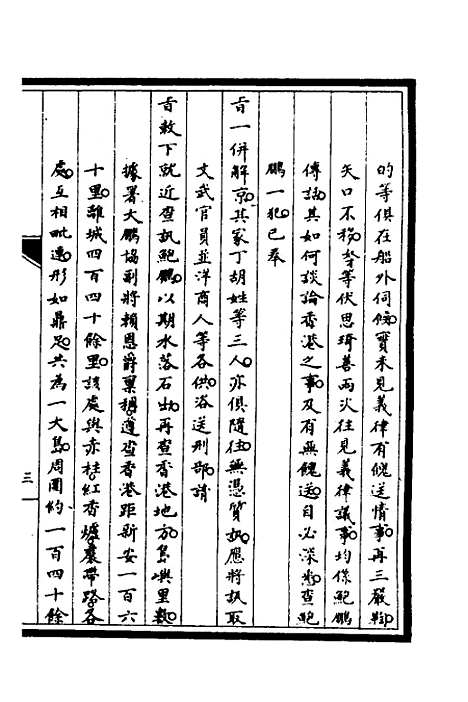 的等俱在船外伺候實未見義律有餽送情事再三嚴鞫
矢口不移奴才等伏思琦善兩次往見義律議事均係鮑鵬
傳話其如何談論香港之事及有無餽送自必深悉查鮑
鵬一犯已奉
旨一併解京其家丁胡姓等三人亦俱隨往無憑質訊應將訊取
文武官員並洋商人等各供洛送刑部請
旨敕下就近查訊鮑鵬以期水落石出再查香港地方島嶼里數
據署大鵬協副將賴恩爵稟稱遵查香港距新安一百六
十里離城四百四十餘里該處與赤柱紅香爐裙帶路各
處互相毗連形如鼎足共為一大島周圍約一百四十餘
三